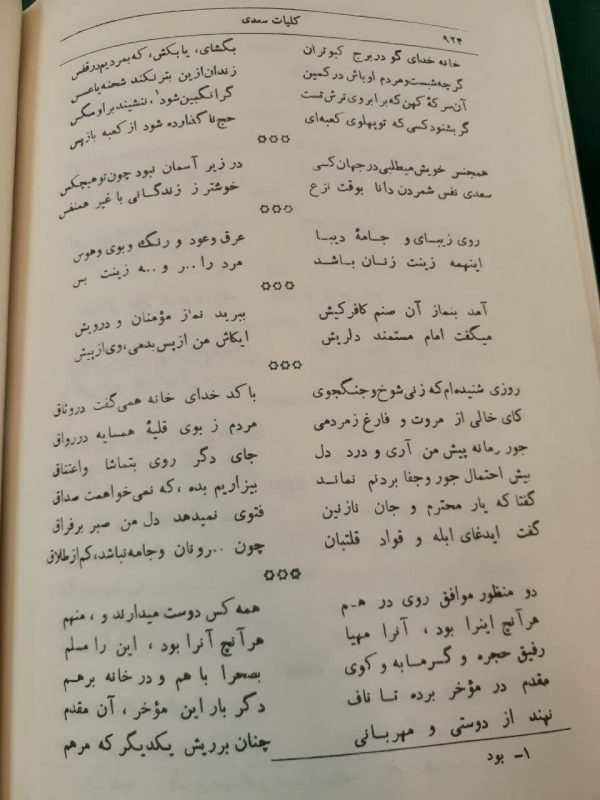 کلیات سعدی
۹۲۴
خانه خدای گو در برج کبوتران بگشای، یا بکش، که بمردیم در قفس
گرچه شبست و مردم اوباش در کمین زندان ازین بتر نکند شحنه یا عسس
آن سرکهٔ کهن که بر ابروی ترش تست گر انگبین شود۱، ننشیند بر او مگس
گر بشنود کسی که تو پهلوی کعبه‌ای حج ناگذارده شود از کعبه باز پس
۞۞۞
همجنس خویش میطلبی در جهان کسی در زیر آسمان نبود چون تو هیچکس
سعدی نفس شمردن دانا بوقت نزع خوشتر ز زندگانی با غیر همنفس
۞۞۞
روی زیبای و جامهٔ دیبا عرق و عود و رنگ و بوی و هوس
اینهمه زینت زنان باشد مرد را ..ر و ..ه زینت بس
۞۞۞
آمد بنماز آن صنم کافر کیش ببرید نماز مؤمنان و درویش
میگفت امام مستمند دلریش ایکاش من از پس بدمی، وی از پیش
۞۞۞
روزی شنیده‌ام که زنی شوخ و جنگجوی با کد خدای خانه همی گفت در وثاق
کای خالی از مروت و فارغ ز مردمی مردم ز بوی قلیهٔ همسایه در رواق
جور زمانه پیش من آری و درد دل جای دگر روی بتماشا واعتناق
بیش احتمال جور و جفا بردنم نماند بیزاریم بده، که نمی‌خواهمت صداق
گفتا که یار محترم و جان نازنین فتوی نمیدهد دل من صبر بر فراق
گفت ایدغای ابله و قواد قلتبان چون ..رونان وجامه نباشد، کم از طلاق
۞۞۞
دو منظور موافق روی در هم همه کس دوست میدارند و، منهم
هر آنچ اینرا بود، آنرا مهیا هر آنچ آنرا بود، این را مسلم
رفیق حجره و گرمابه و کوی بصحرا با هم و در خانه بر هم
مقدم در مؤخر برده تا ناف دگر بار این مؤخر، آن مقدم
نهند از دوستی و مهربانی چنان بر ریش یکدیگر که مرهم
۱- بود